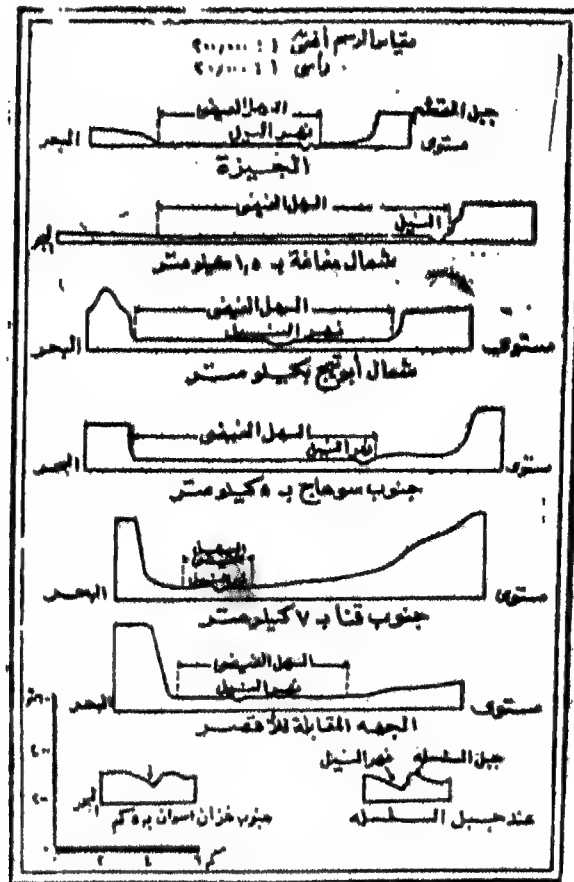 مقياس الرسم أفقى ١ : ٢٠٠٫٠٠٠
رأسى ١ : ٢٠٫٠٠٠
السهل الفيضى
جبل المقطم
نهر النيل
مستوى
البحر
الجيزة
السهل الفيضى
النيل
البحر
شمال مغاغة بـ ١٫٥ كيلو متر
السهل الفيضى
نهر النيل
مستوى
البحر
شمال أبو تيج بكيلو متر
السهل الفيضى
نهر النيل
مستوى
البحر
جنوب سوهاج بـ ٥ كيلو متر
السهل
الفيضى
نهر النيل
مستوى
البحر
جنوب قنا بـ ٧ كيلو متر
السهل الفيضى
نهر النيل
مستوى
البحر
الجهه المقابلة للأقصر
٤٠٠
٢٠٠
جبل السلسله
نهر النيل
عند جبل السلسله
البحر
جنوب خزان اسوان بـ ٥ كم
٠ ٢ ٤ ٦ كم